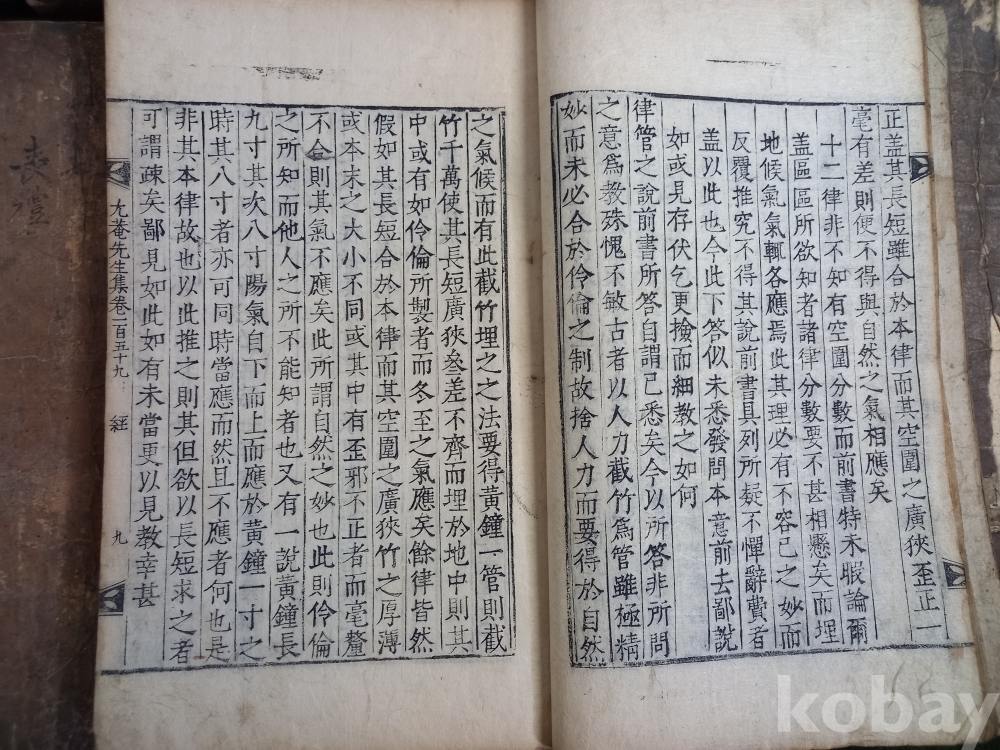 正盖其長短雖合於本律而其空圍之廣狹歪正一
毫有差則便不得與自然之氣相應矣
十二律非不知有空圍分數而前書特未暇論爾
盖區區所欲知者諸律分數要不甚相懸矣而埋
地候氣氣輒各應焉此其理必有不容已之妙而
反覆推究不得其說前書具列所疑不憚辭費者
盖以此也今此下答似未悉發問本意前去鄙說
如或見存伏乞更撿而細教之如何
律管之說前書所答自謂已悉矣今以所答非所問
之意爲教殊愧不敏古者以人力截竹爲管雖極精
妙而未必合於伶倫之制故捨人力而要得於自然
之氣候而有此截竹埋之之法要得黃鐘一管則截
竹千萬使其長短廣狹叄差不齊而埋於地中則其
中或有如伶倫所製者而冬至之氣應矣餘律皆然
假如其長短合於本律而其空圍之廣狹竹之厚薄
或本末之大小不同或其中有歪邪不正者而毫釐
不合則其氣不應矣此所謂自然之妙也此則伶倫
之所知而他人之所不能知者也又有一說黃鐘長
九寸其次八寸陽氣自下而上而應於黃鐘一寸之
時其八寸者亦可同時當應而然且不應者何也是
非其本律故也以此推之則其但欲以長短求之者
可謂疎矣鄙見如此如有未當更以見教幸甚
尤菴先生集卷一百五十九 經 九
表禮
kobay